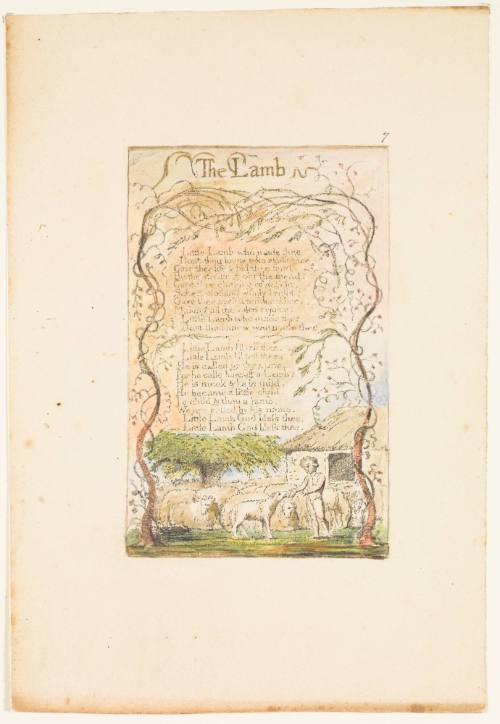 7
The Lamb
Little Lamb who made thee
Dost thou know who made thee
Gave thee life & bid thee feed.
By the stream & o'er the mead;
Gave thee clothing of delight,
Softest clothing wooly bright;
Gave thee such a tender voice,
Making all the vales rejoice:
Little Lamb who made thee
Dost thou know who made thee
Little Lamb I'll tell thee,
Little Lamb I'll tell thee;
He is called by thy name,
For he calls himself a Lamb:
He is meek & he is mild,
He became a little child:
I a child & thou a lamb,
We are called by his name.
Little Lamb God bless thee,
Little Lamb God bless thee.